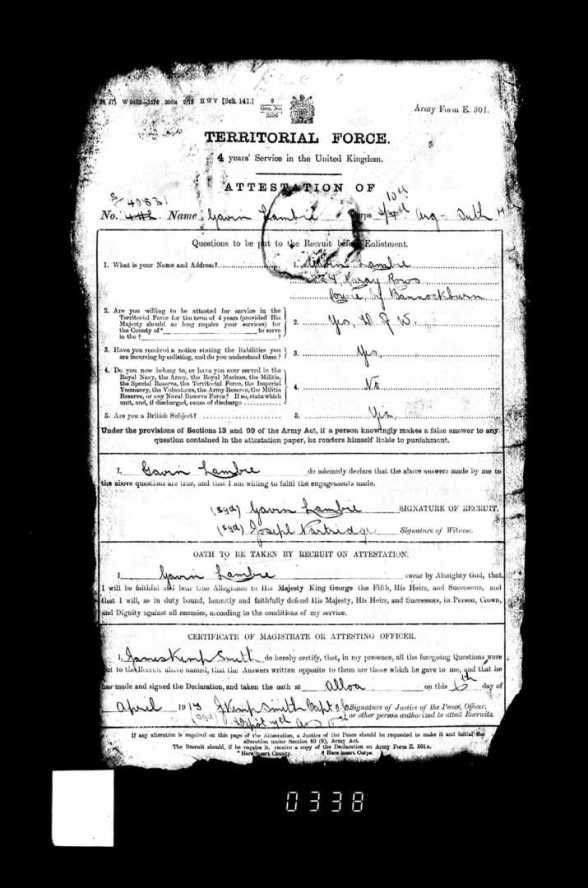 Army Form E. 501.
TERRITORIAL FORCE.
4 years' Service in the United Kingdom.
ATTESTATION OF
No. Name Gavin Lambie Corps
Questions to be put to the Recruit before Enlistment.
1. What is your Name and Address? 1. Gavin Lambie
Rows
Bannockburn
2. Are you willing to be attested for service in the
Territorial Force for the term of 4 years (provided His
Majesty should so long require your services) for
the County of* to serve
in the † ? 2. Yes,
3. Have you received a notice stating the liabilities you
are incurring by enlisting, and do you understand them? 3. Yes
4. Do you now belong to, or have you ever served in the
Royal Navy, the Army, the Royal Marines, the Militia,
the Special Reserve, the Territorial Force, the Imperial
Yeomanry, the Volunteers, the Army Reserve, the Militia
Reserve, or any Naval Reserve Force? If so, state which
unit, and, if discharged, cause of discharge 4. No
5. Are you a British Subject? 5. Yes
Under the provisions of Sections 13 and 99 of the Army Act, if a person knowingly makes a false answer to any
question contained in the attestation paper, he renders himself liable to punishment.
I, Gavin Lambie do solemnly declare that the above answers made by me to
the above questions are true, and that I am willing to fulfil the engagements made.
(sgd) Gavin Lambie SIGNATURE OF RECRUIT.
(sgd) Joseph Partridge Signature of Witness.
OATH TO BE TAKEN BY RECRUIT ON ATTESTATION.
I, Gavin Lambie swear by Almighty God, that
I will be faithful and bear true Allegiance to His Majesty King George the Fifth, His Heirs, and Successors, and
that I will, as in duty bound, honestly and faithfully defend His Majesty, His Heirs, and Successors, in Person, Crown,
and Dignity against all enemies, according to the conditions of my service.
CERTIFICATE OF MAGISTRATE OR ATTESTING OFFICER.
I, James Kemp Smith do hereby certify, that, in my presence, all the foregoing Questions were
put to the Recruit above named, that the Answers written opposite to them are those which he gave to me, and that he
has made and signed the Declaration, and taken the oath at Alloa on this 6th day of
April 191 J Kemp Smith Capt Signature of Justice of the Peace, Officer,
(sgd) or other person authorized to attest Recruits.
If any alteration is required on this page of the Attestation, a Justice of the Peace should be requested to make it and initial the
alteration under Section 80 (6), Army Act.
The Recruit should, if he require it, receive a copy of the Declaration on Army Form E. 501A.
* Here insert County. † Here insert Corps.
0338